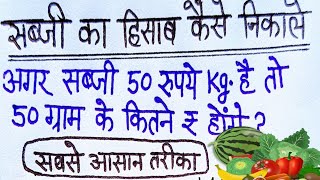 सब्जी का हिसाब कैसे निकाले
अगर सब्जी 50 रुपये Kg. है तो
50 ग्राम के कितने ₹ होंगे ?
सबसे आसान तरीका